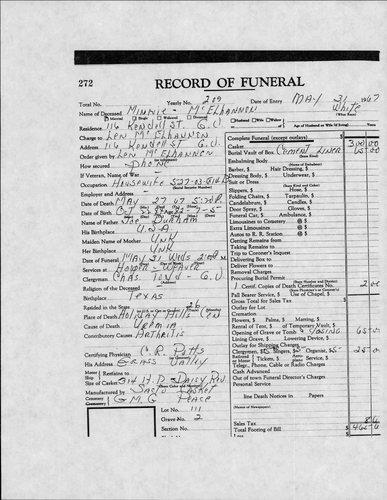 272 RECORD OF FUNERAL
Total No. Yearly No. 209 Date of Entry MAY 31 1967
Name of Deceased Minnie - McElhannon White
Married Single Widowed Divorced Husband Wife Widow
Residence 116 Kendall ST G.V.
Charge to Len McElhannon
Address 116 Kendall ST G.V.
Order given by Len McElhannon
How secured Phone
If Veteran, Name of War -
Occupation Housewife
Employer and Address -
Date of Death May 27 67
Date of Birth Oct
Name of Father Joe
His Birthplace USA
Maiden Name of Mother Unk
Her Birthplace Unk
Date of Funeral May 31 Weds 2:00
Services at Hooper-Weaver
Clergyman Chas. Todd - G.V.
Religion of the Deceased
Birthplace Texas
Resided in the State 26
Place of Death Holiday Hills
Cause of Death Uremia
Contributory Causes Arthritis
Certifying Physician C. R. Potts
His Address Grass Valley
Motor Ship Remains to
Size of Casket
Manufactured by Casket
Cemetery G.M.G. Peace
Lot No. 111
Grave No. 2
Section No.
Complete Funeral (except outlays) $
Casket 300 00
Burial Vault or Box Cement Liner 65 00
Embalming Body
Barber, $ Hair Dressing, $
Dressing Body, $ Underwear, $
Suit or Dress
Slippers, $ Hose, $
Folding Chairs, $ Tarpaulin, $
Candelabrum, $ Candles, $
Door Spray, $ Gloves, $
Funeral Car, $ Ambulance, $
Limousines to Cemetery @ $
Extra Limousines @ $
Autos to R. R. Station @ $
Getting Remains from
Taking Remains to
Trip to Coroner's Inquest
Delivering Box to
Deliver Flowers to
Removal Charges
Procuring Burial Permit
1 Certif. Copies of Death Certificates No. 2 00
Pall Bearer Service, $ Use of Chapel, $
Gross Total for Sales Tax $
Outlay for Lot
Cremation
Flowers, $ Palms, $ Matting, $
Rental of Tent, $ of Temporary Vault, $
Opening of Grave or Tomb & Closing 65 00
Lining Grave, $ Lowering Device, $
Outlay for Shipping Charges
Clergyman, $ Singers, $ Organist, $ 25 00
Tickets, $ Service, $
Teleg., Phone, Cable or Radio Charges
Cash Advanced
Out of town Funeral Director's Charges
Personal Service
line Death Notices in Papers
Sales Tax
Total Footing of Bill $
Less $